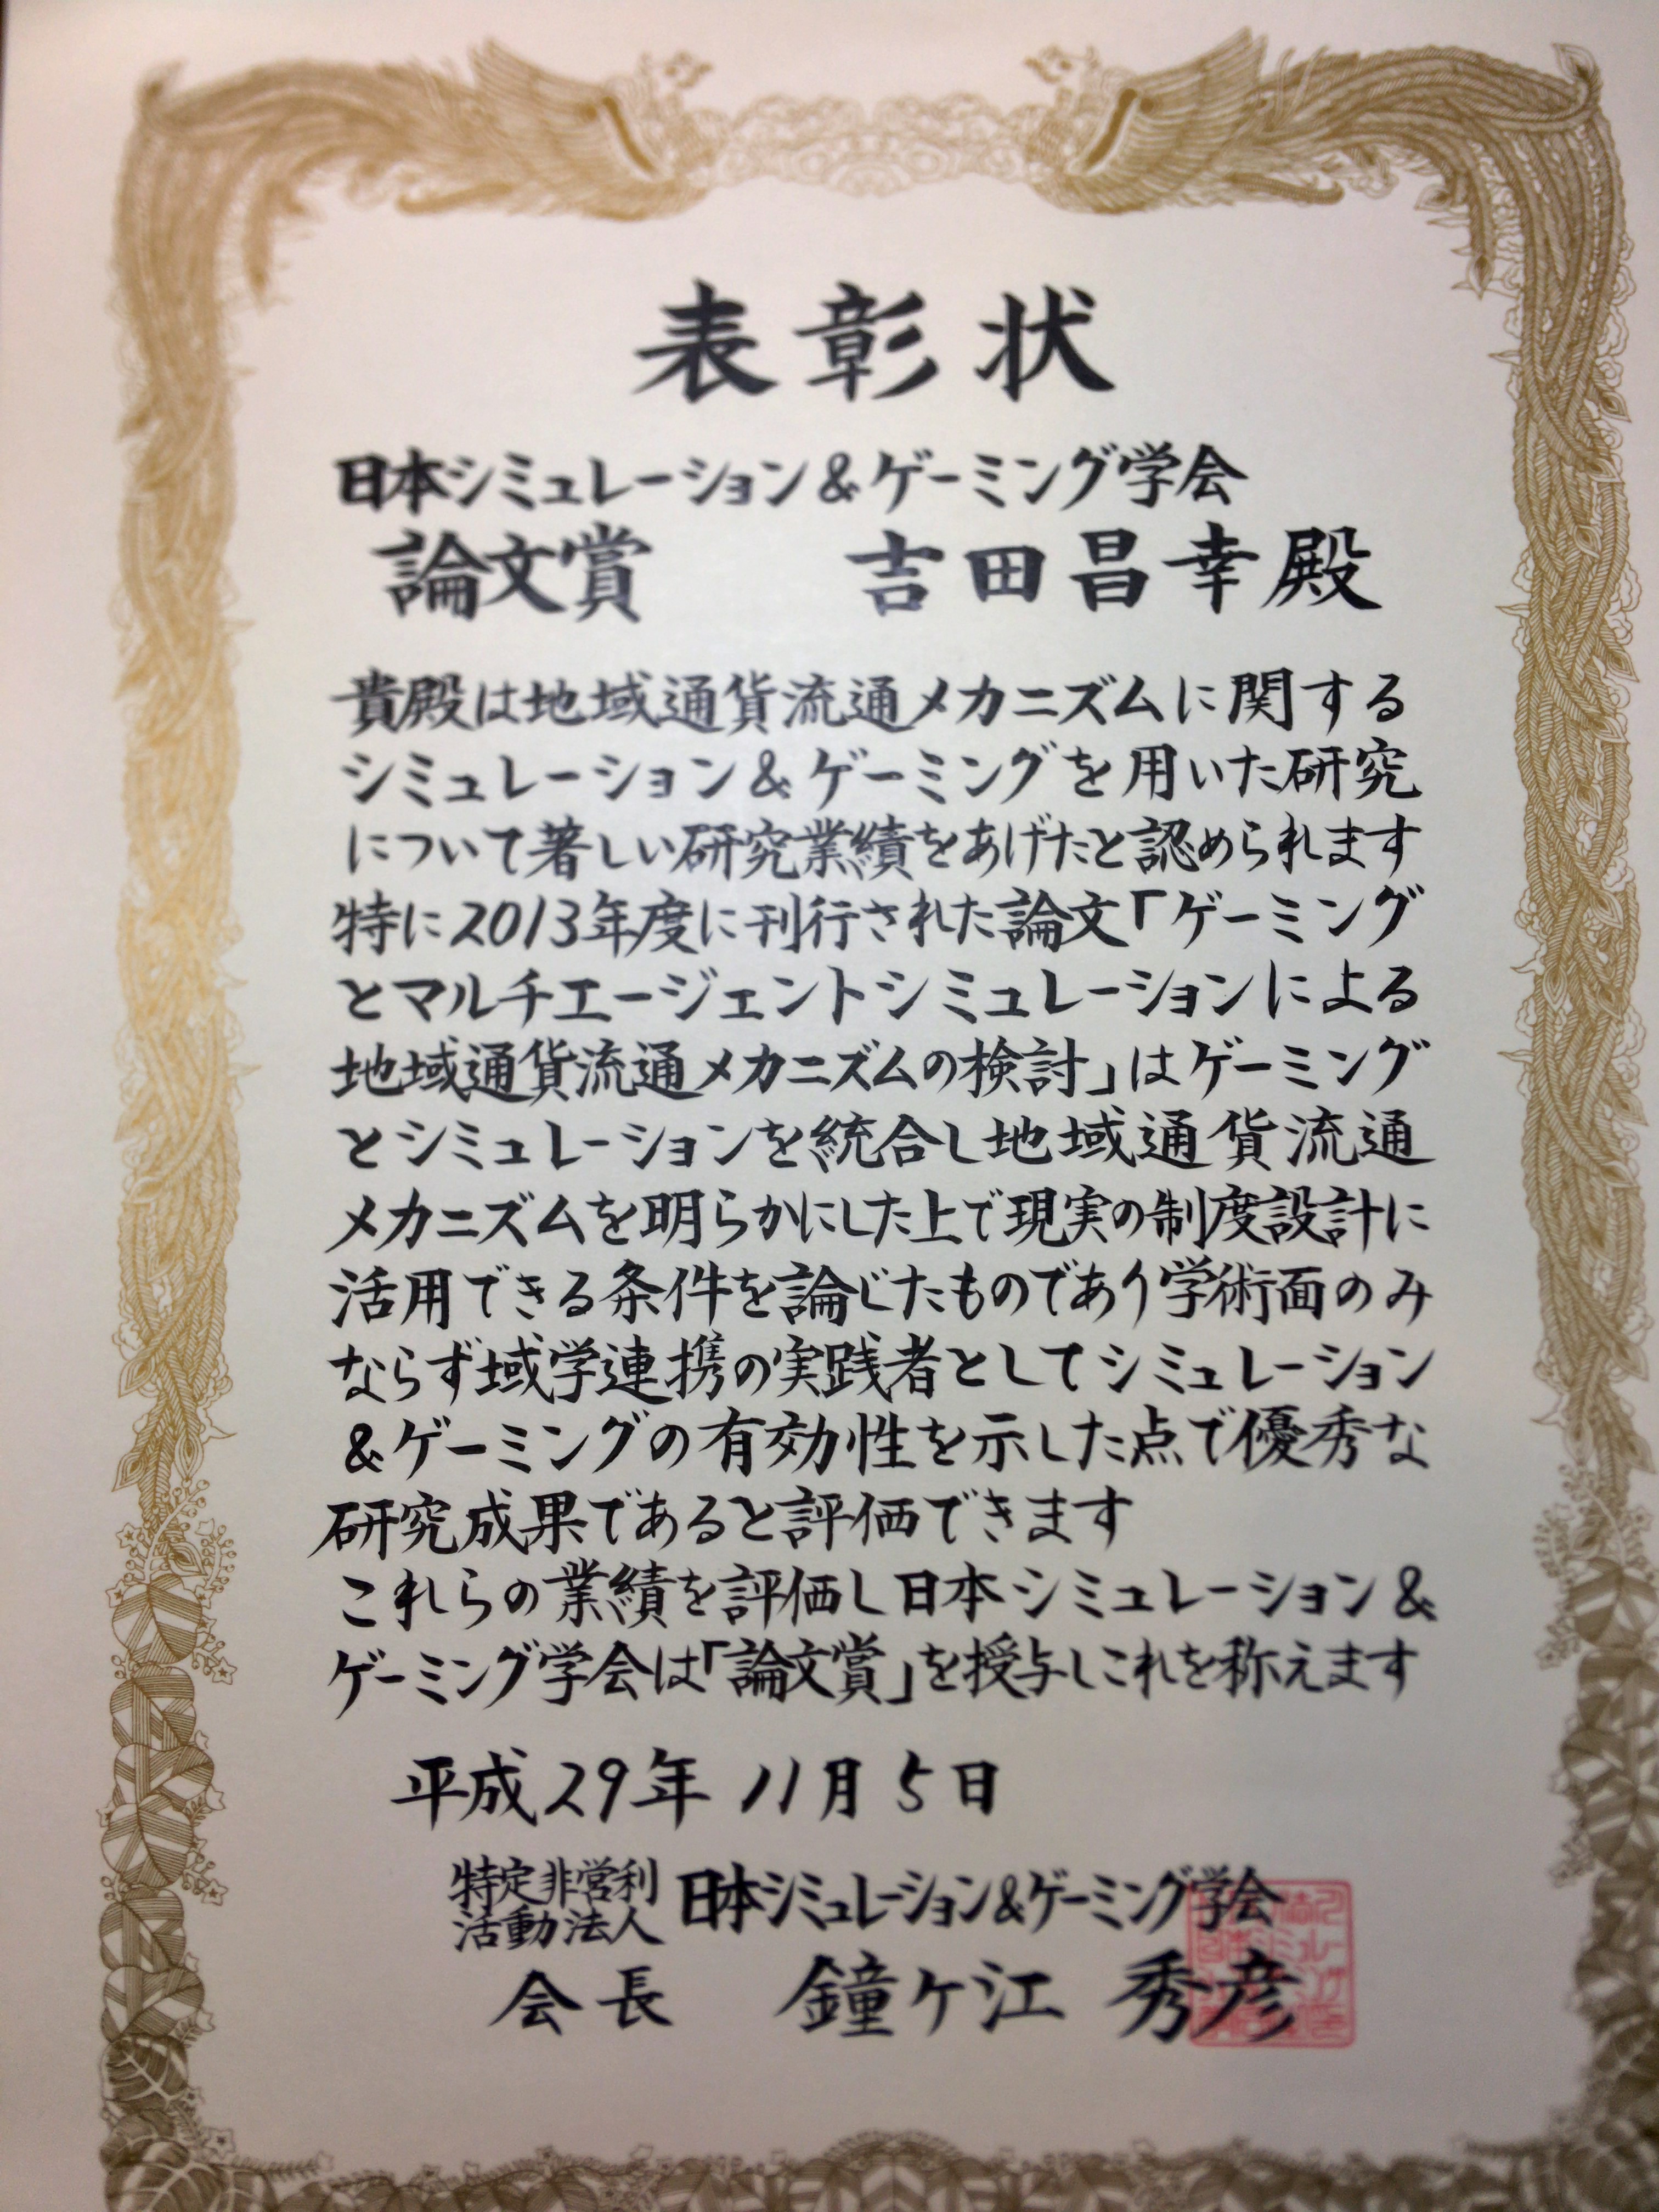 表彰状
日本シミュレーション&ゲーミング学会
論文賞 吉田昌幸殿
貴殿は地域通貨流通メカニズムに関する
シミュレーション&ゲーミングを用いた研究
について著しい研究業績をあげたと認められます
特に2013年度に刊行された論文「ゲーミング
とマルチエージェントシミュレーションによる
地域通貨流通メカニズムの検討」はゲーミング
とシミュレーションを統合し地域通貨流通
メカニズムを明らかにした上で現実の制度設計に
活用できる条件を論じたものであり学術面のみ
ならず域学連携の実践者としてシミュレーション
&ゲーミングの有効性を示した点で優秀な
研究成果であると評価できます
これらの業績を評価し日本シミュレーション&
ゲーミング学会は「論文賞」を授与しこれを称えます
平成29年11月5日
特定非営利
活動法人 日本シミュレーション&ゲーミング学会
会長 鐘ヶ江 秀彦